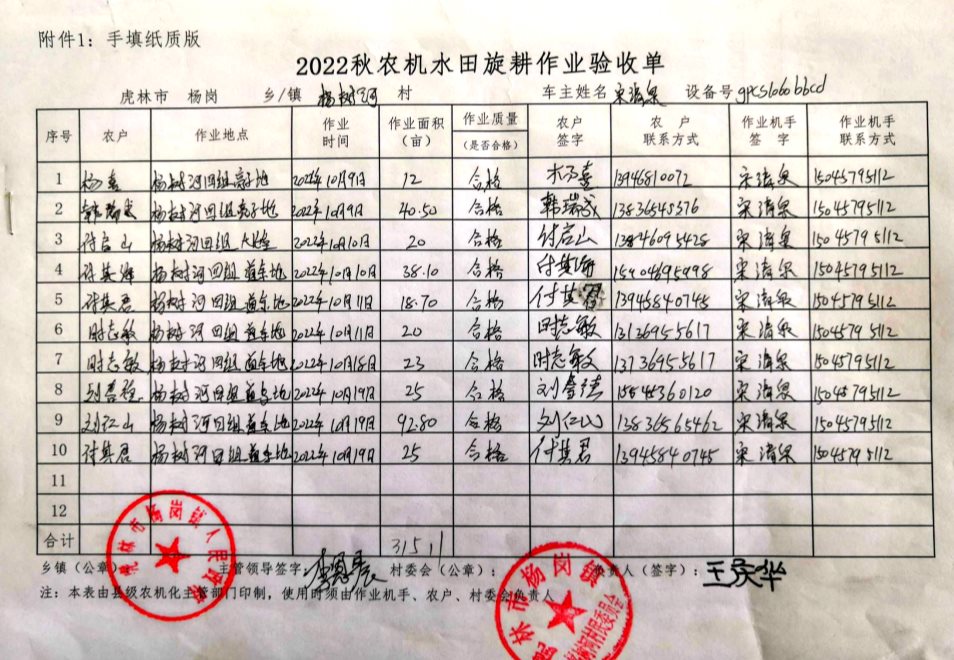 附件1：手填纸质版
2022秋农机水田旋耕作业验收单
虎林市 杨岗 乡/镇 杨树河 村 车主姓名 宋清泉 设备号 gpcslobobbcd
序号 农户 作业地点 作业时间 作业面积（亩） 作业质量（是否合格） 农户签字 农户联系方式 作业机手签字 作业机手联系方式
1 杨喜 杨树河四组 2022年10月9日 12 合格 13946810072 宋清泉 15045795112
2 韩瑞成 杨树河四组 2022年10月9日 40.50 合格 韩瑞成 13836548376 宋清泉 15045795112
3 付启山 杨树河四组 2022年10月10日 20 合格 付启山 13846095428 宋清泉 15045795112
4 付其海 杨树河四组 2022年10月10日 38.10 合格 付其海 15904695998 宋清泉 15045795112
5 付其君 杨树河四组 2022年10月11日 18.70 合格 付其君 13945840745 宋清泉 15045795112
6 时志敏 杨树河四组 2022年10月11日 20 合格 时志敏 13136955617 宋清泉 15045795112
7 时志敏 杨树河四组 2022年10月18日 23 合格 时志敏 13736955617 宋清泉 15045795112
8 杨树河四组 2022年10月19日 25 合格 宋清泉 15045795112
9 刘仁山 杨树河四组 2022年10月19日 92.80 合格 刘仁山 13836565462 宋清泉 15045795112
10 付其君 杨树河四组 2022年10月19日 25 合格 付其君 13945840745 宋清泉 15045795112
11
12
合计 315.1
乡镇（公章） 主管领导签字： 村委会（公章）： 负责人（签字）：王庆华
注：本表由县级农机化主管部门印制，使用时须由作业机手、农户、村委会负责人
虎林市杨岗镇人民政府
虎林市杨岗镇杨树河村村民委员会